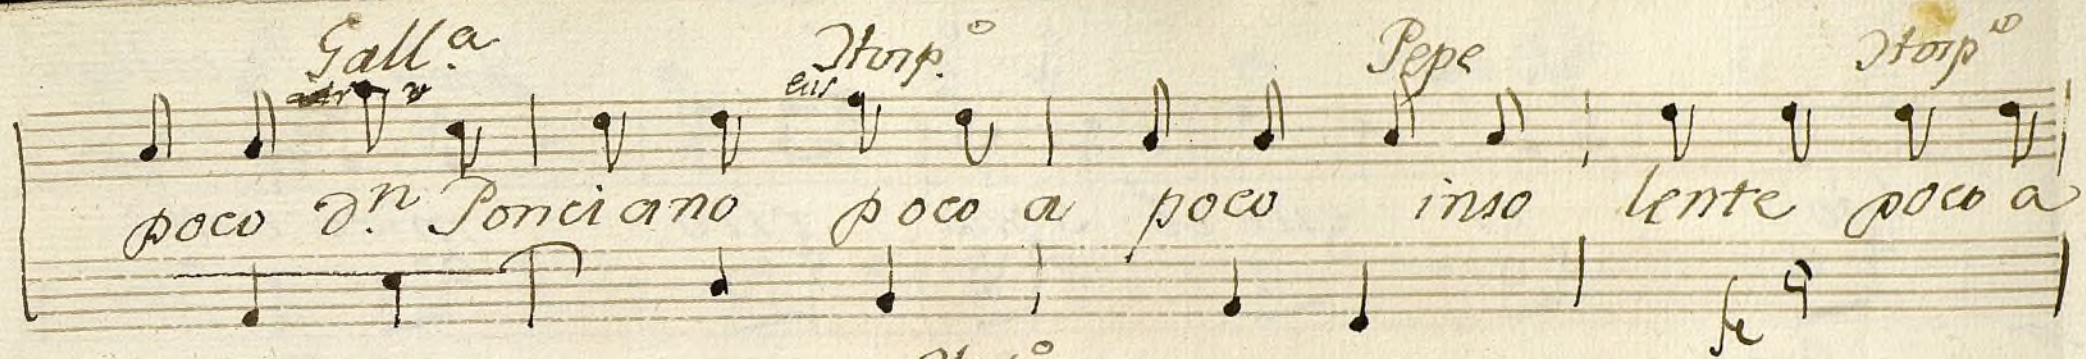 Gall.ª Horp.º Pepe Horpº
poco Dn. Ponciano poco a poco inso lente poco a